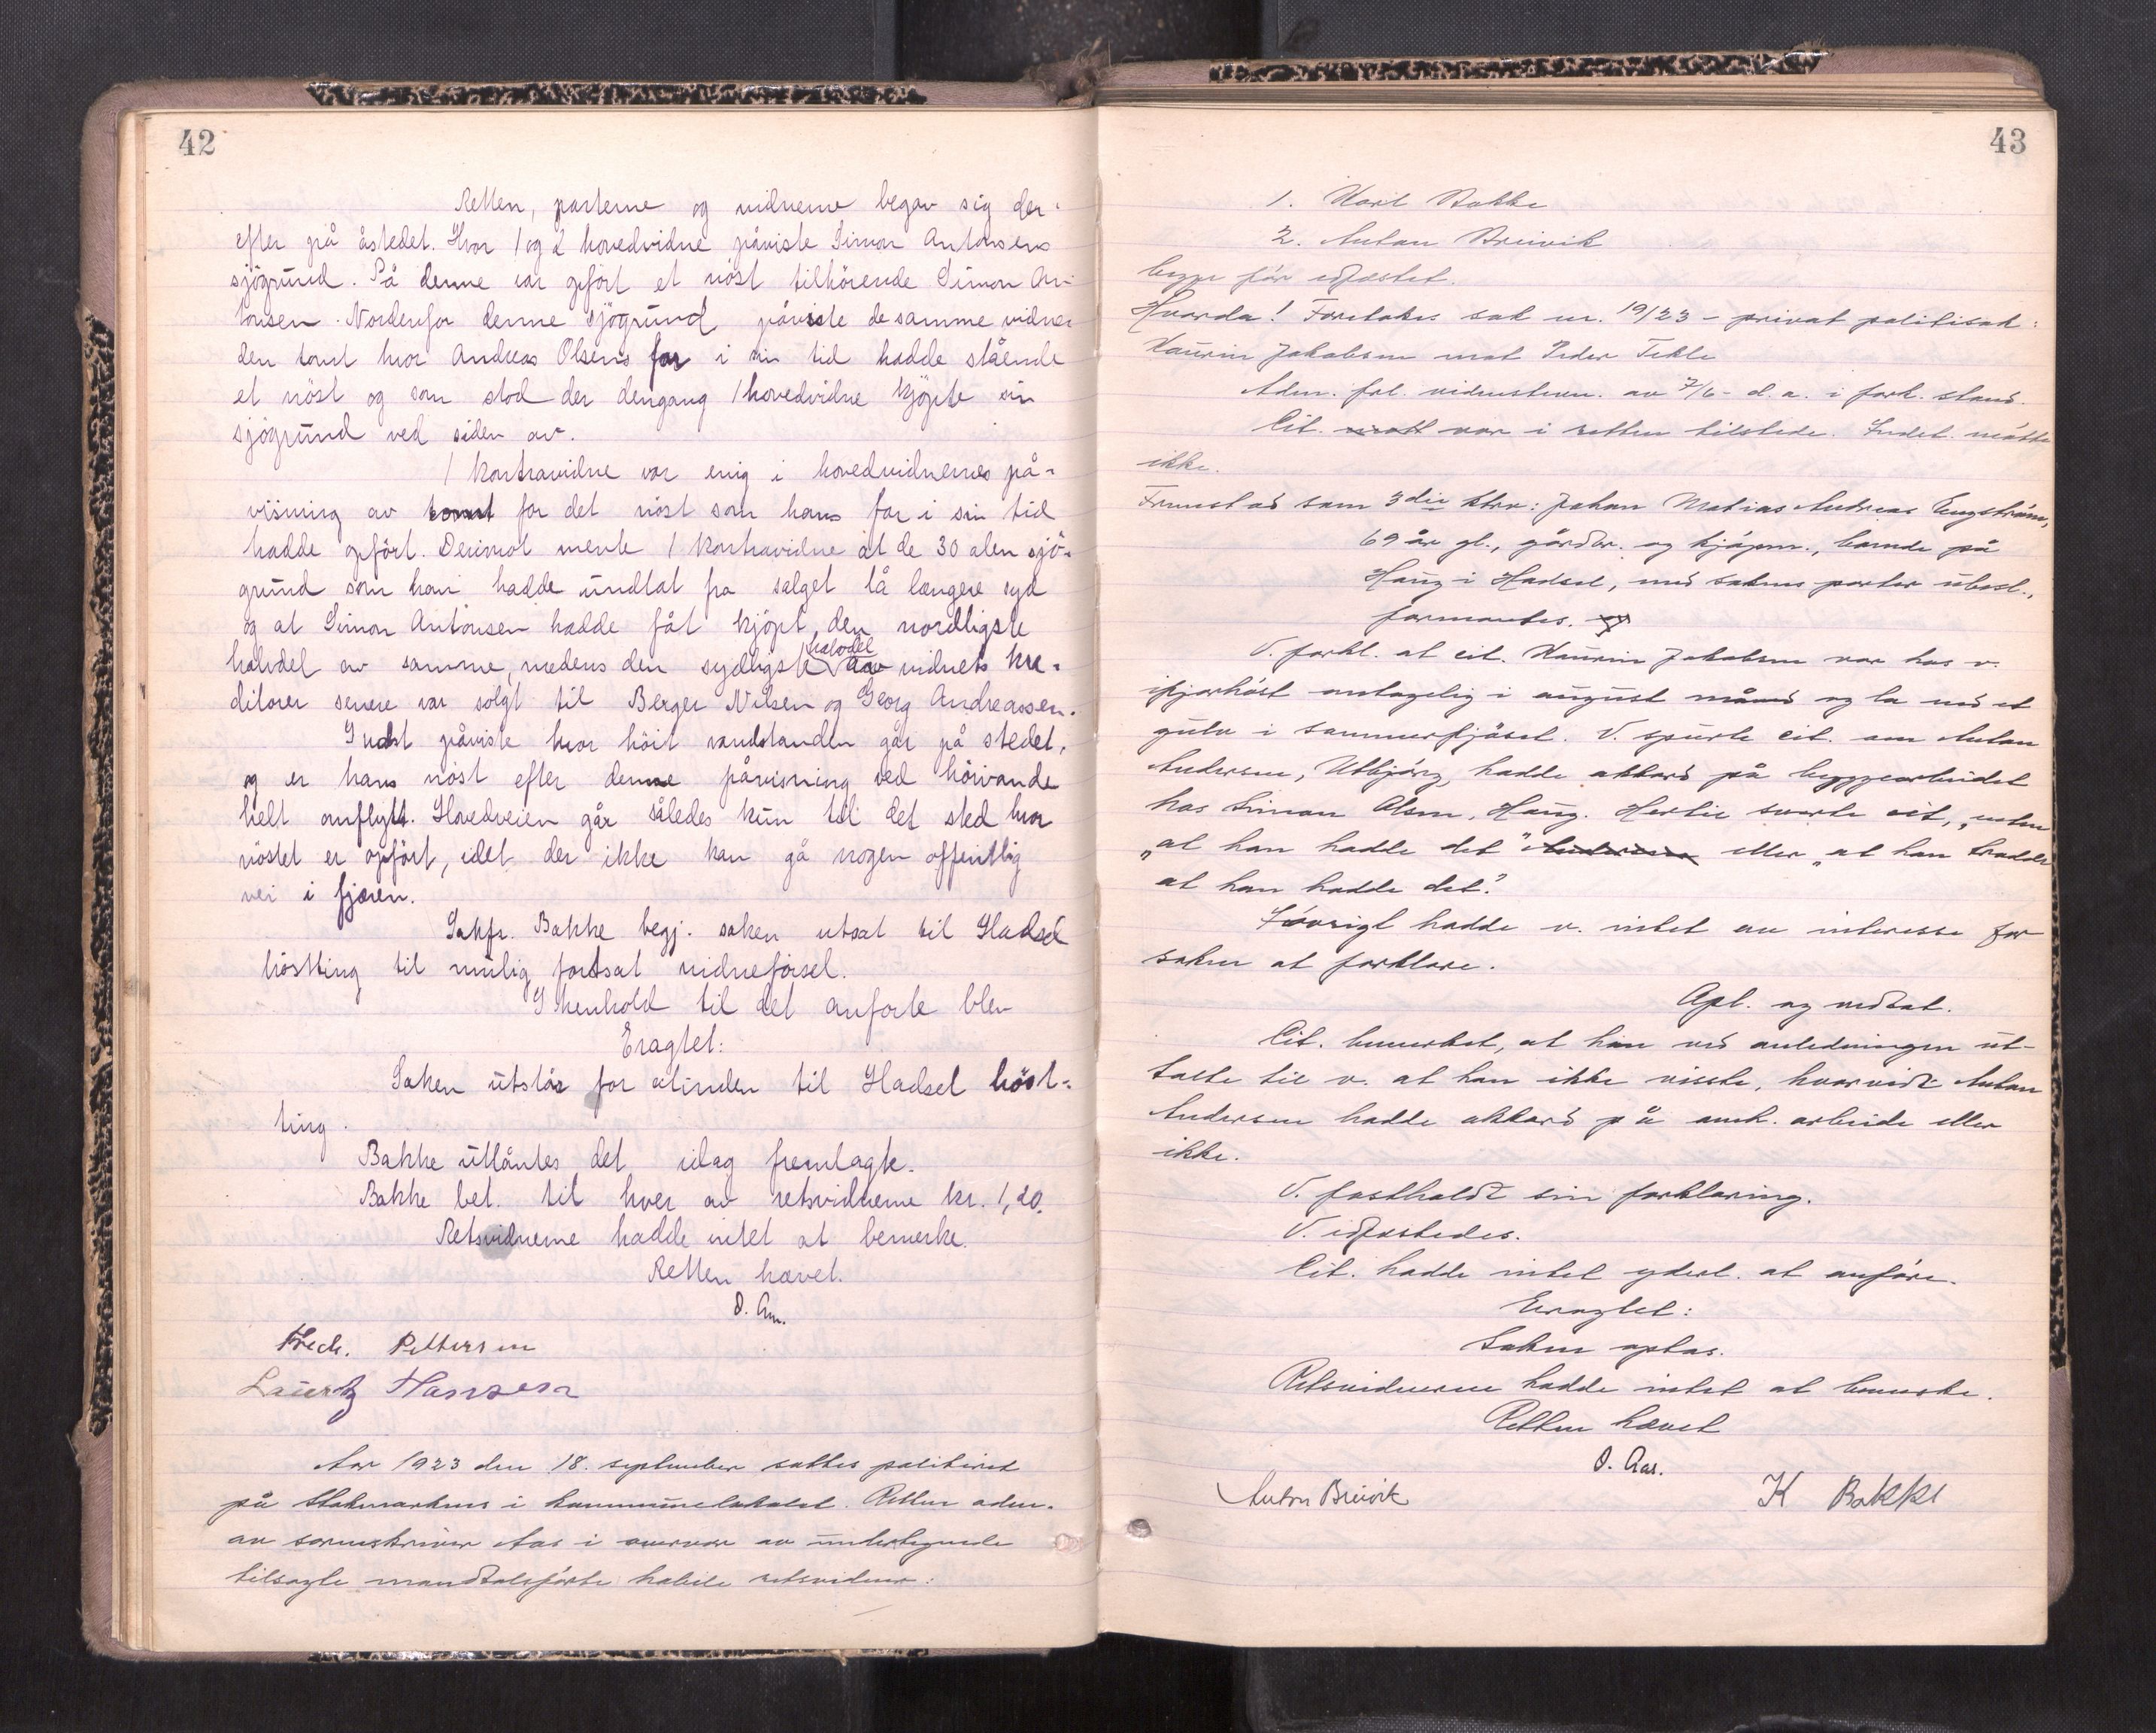 42
Retten, parterne og vidnerne begav sig der-
efter på åstedet. Hvor 1 og 2 hovedvidne påviste Simon Antonsens
sjögrund. På denne var opfört et nöst tilhörende Simon An-
tonsen. Nordenfor denne sjögrund påviste de samme vidner
den tomt hvor Andreas Olsens far i sin tid hadde stående
et nöst og som stod der dengang 1 hovedvidne kjöpte sin
sjögrund ved siden av.
1 kontravidne var enig i hovedvidnernes på-
visning av tomt for det nöst som hans far i sin tid
hadde opfört. Derimot mente 1 kontravidne at de 30 alen sjö-
grund som han hadde undtat fra salget lå længere syd
og at Simon Antonsen hadde fåt kjöpt den nordligste
halvdel av samme, medens den sydligste halvdel av vidnets kre-
ditorer senere var solgt til Berger Nilsen og Georg Andreassen.
Indst påviste hvor höit vandstanden går på stedet,
og er hans nöst efter denne påvisning ved höivande
helt omflytt. Hovedveien går således kun til det sted hvor
nöstet er opfört, idet der ikke kan gå nogen offentlig
vei i fjæren.
Sakfr. Bakke begj. saken utsat til Hadsel
hösttting til mulig fortsat vidneførsel.
I henhold til det anførte blev
Eragtet:
Saken utstår for atinden til Hadsel höst-
ting.
Bakke utlåntes det idag fremlagte.
Bakke bet. til hver av retsvidnerne kr. 1,20.
Retsvidnerne hadde intet at bemerke.
Retten hævet.
O. Aas.
Fredr. Pettersen
Lauritz Hansen
Aar 1923 den 18. september sattes politiret
på Stokmarknes i kommunelokalet. Retten adm.
av sorenskriver Aas i overvær av undertegnede
tilsagte mandtalsförte habile retsvidner:
43
1. Karl Bakke
2. Anton Breivik
begge för edfæstet.
Hvorda! Foretokes sak nr. 19/23 - privat politisak:
Kaurin Jakobsen mot Peder Tekle
Adm. frl. vidnestevn. av 7/6- d.a. i fork. stand.
Cit. var i retten tilstede. Indst. mötte
ikke.
Fremstod som 3die vidne: Johan Matias Andreas Engström,
69 år gl., gårdbr. og kjöpm., boende på
Haug i Hadsel, med sakens parter ubesl.,
formantes.
V. forkl. at cit. Kaurin Jakobsen var hos v.
ifjorhöst antagelig i august måned og la ned et
gulv i sommerfjöset. V. spurte cit. om Anton
Andersen, Utbjörg, hadde akkord på byggearbeidet
hos Simon Olsen, Haug. Hertil svarte cit. enten
"at han hadde det" eller "at han trodde
at han hadde det."
Iövrigt hadde v. intet av interesse for
saken at forklare.
Opl. og vedtat.
Cit. bemerket, at han ved anledningen ut-
talte til v. at han ikke visste, hvorvidt Anton
Andersen hadde akkord på omh. arbeide eller
ikke.
V. fastholdt sin forklaring.
V. edfæstedes.
Cit. hadde intet yderl. at anföre.
Eragtet:
Saken optas.
Retsvidnerne hadde intet at bemerke.
Retten hævet
O. Aas.
Anton Breivik K Bakke